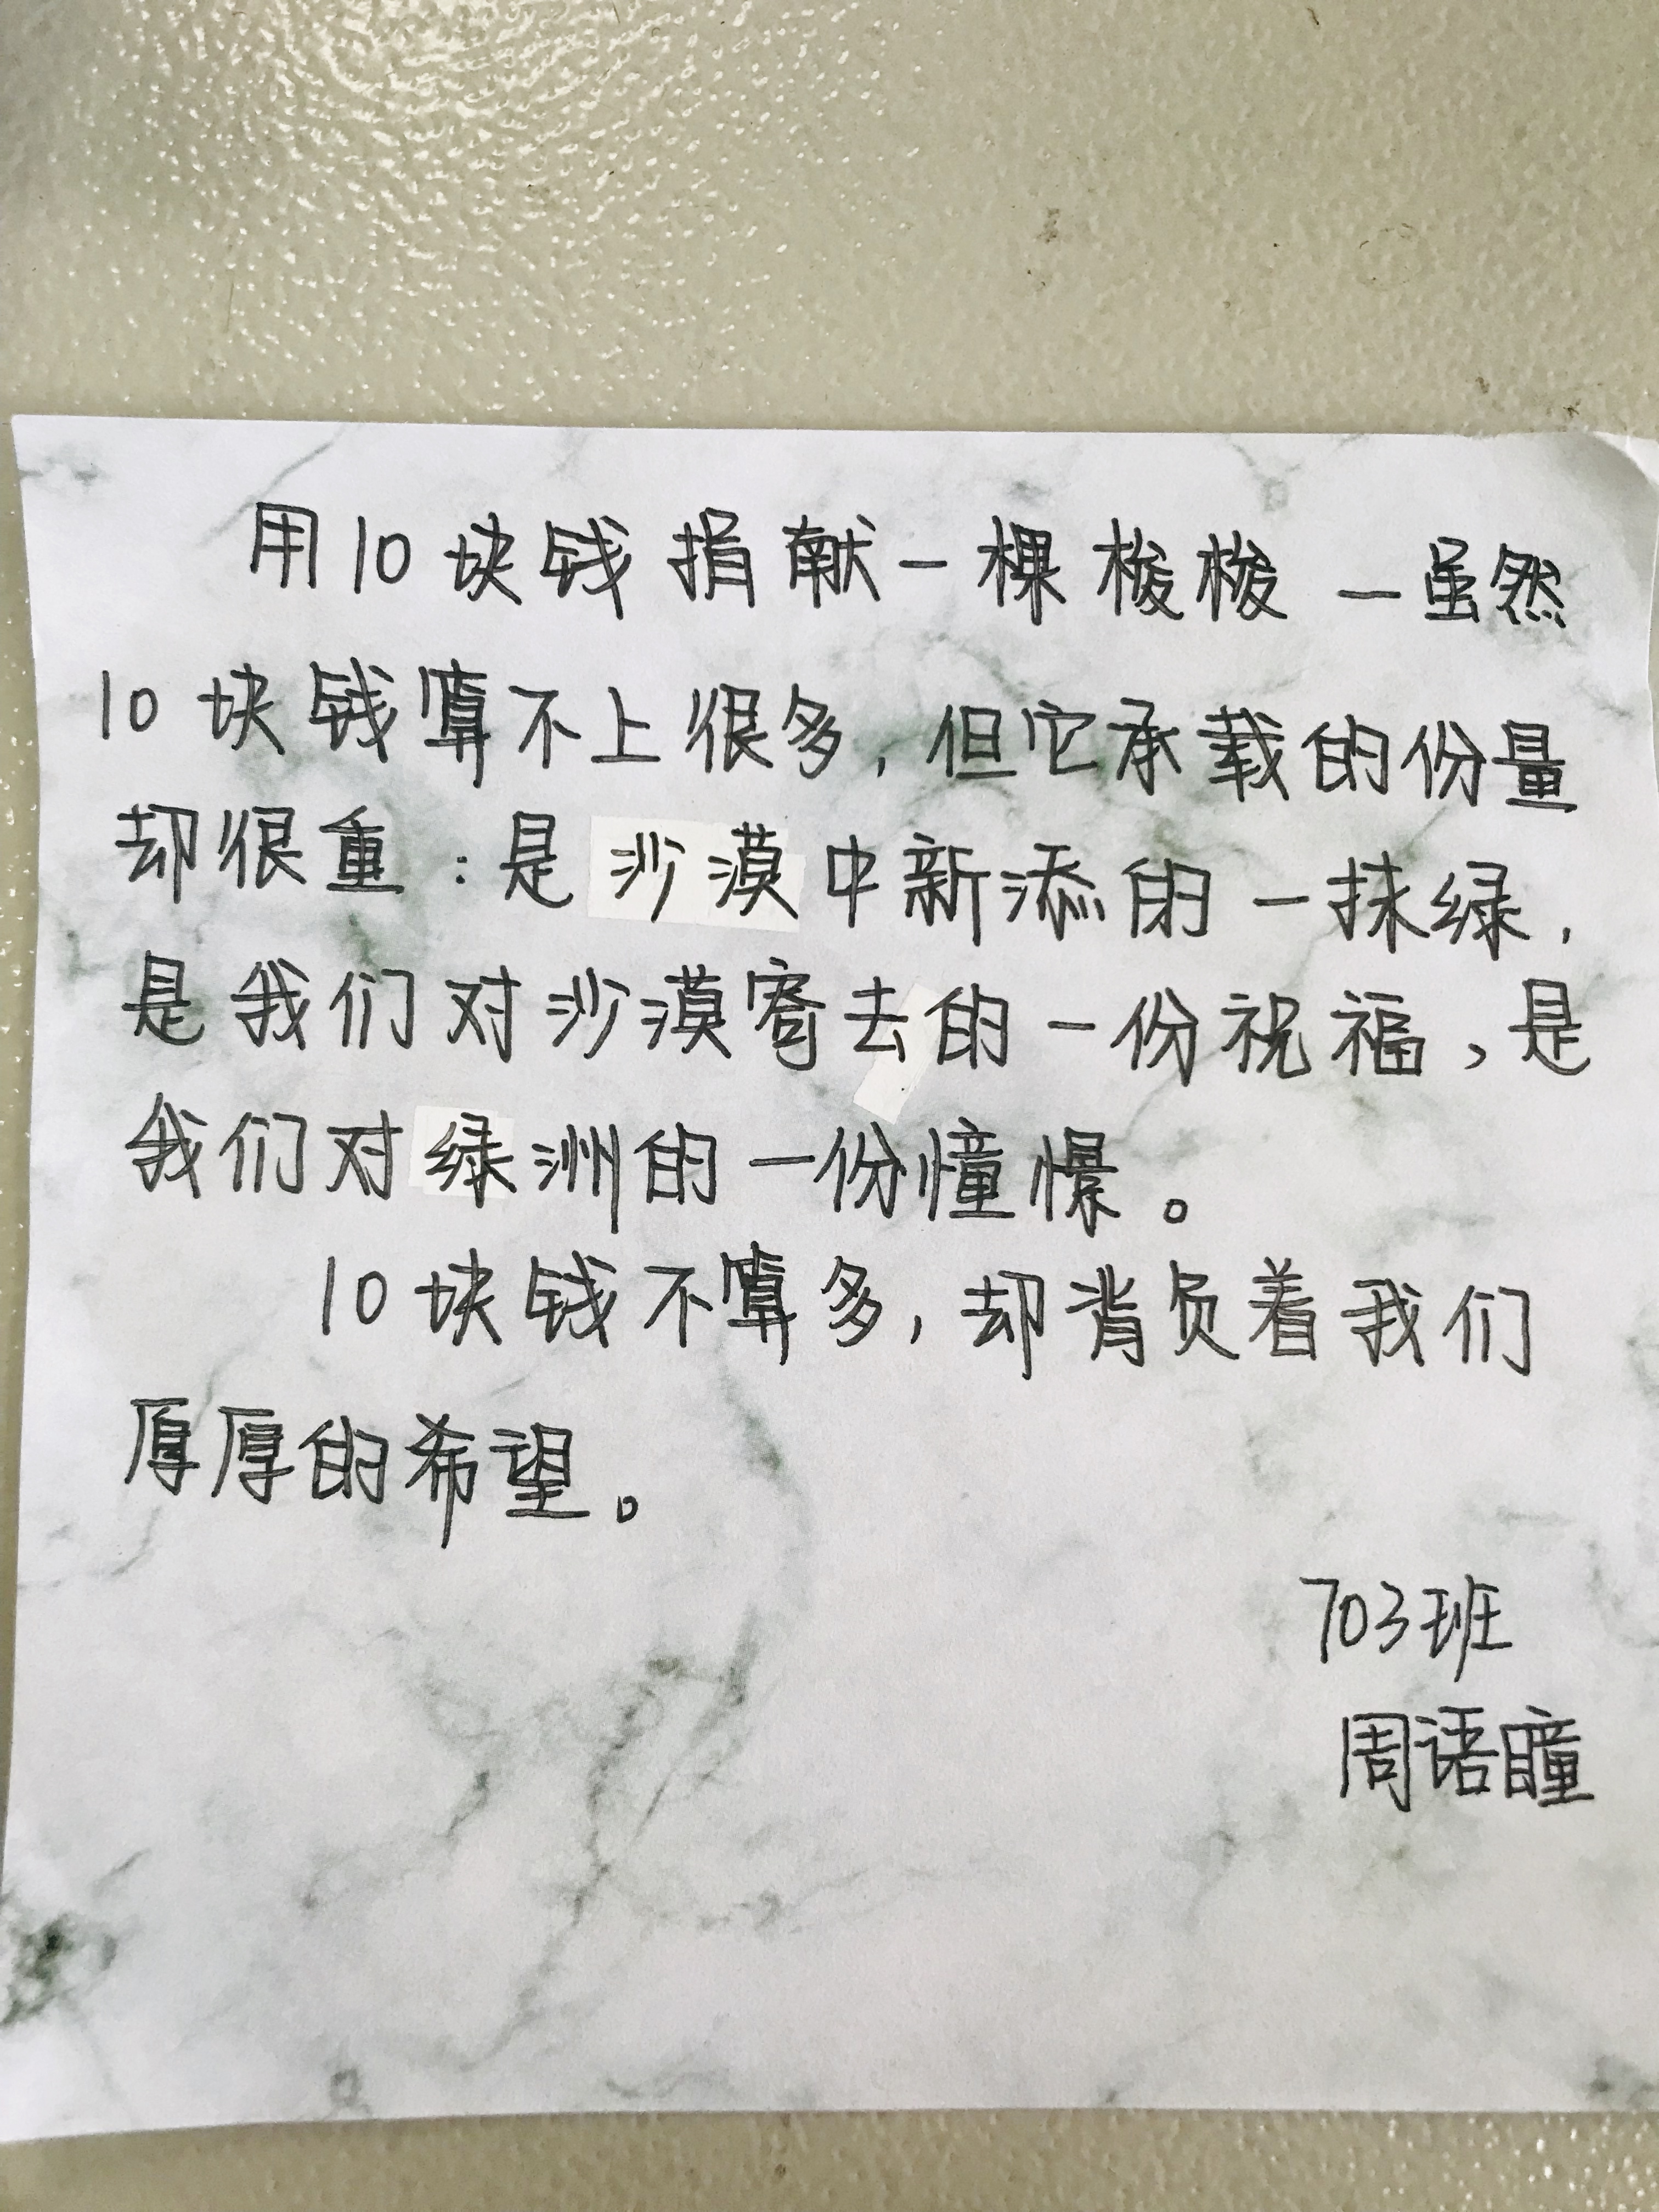 用10块钱捐献一棵梭梭—虽然
10块钱算不上很多，但它承载的份量
却很重：是沙漠中新添的一抹绿，
是我们对沙漠寄去的一份祝福，是
我们对绿洲的一份憧憬。
10块钱不算多，却背负着我们
厚厚的希望。
703班
周语瞳